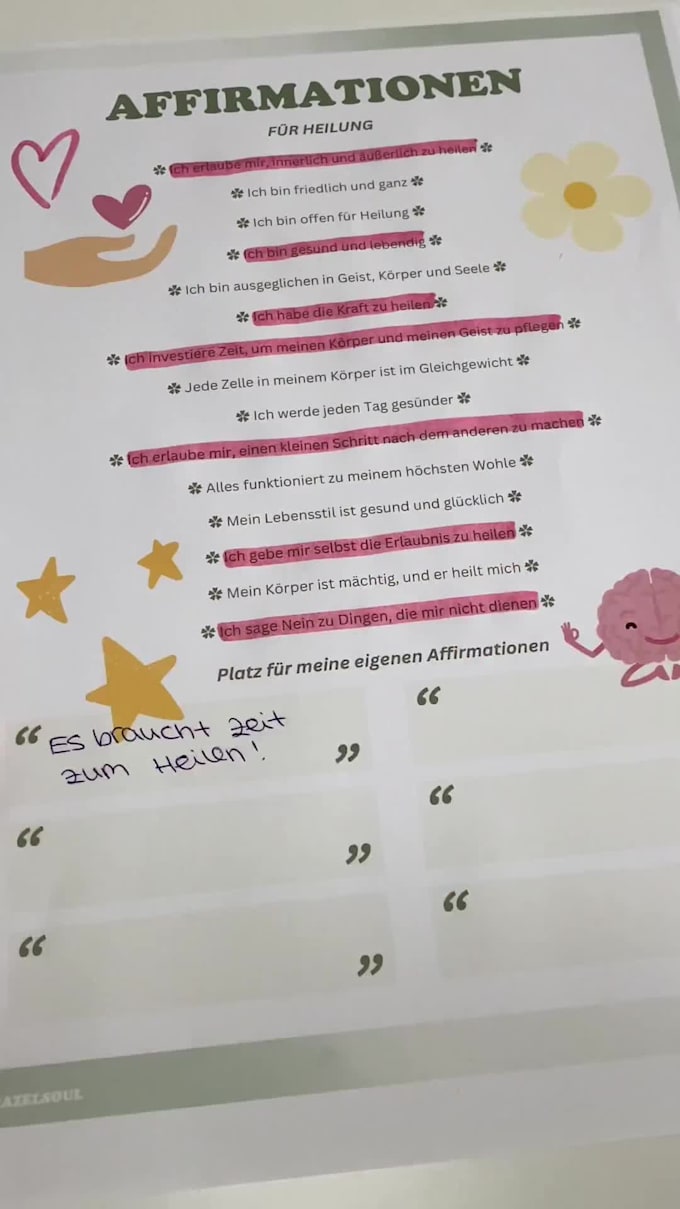 AFFIRMATIONEN
FÜR HEILUNG
Ich erlaube mir, innerlich und äußerlich zu heilen
Ich bin friedlich und ganz
Ich bin offen für Heilung
Ich bin gesund und lebendig
Ich bin ausgeglichen in Geist, Körper und Seele
Ich habe die Kraft zu heilen
Ich investiere Zeit, um meinen Körper und meinen Geist zu pflegen
Jede Zelle in meinem Körper ist im Gleichgewicht
Ich werde jeden Tag gesünder
Ich erlaube mir, einen kleinen Schritt nach dem anderen zu machen
Alles funktioniert zu meinem höchsten Wohle
Mein Lebensstil ist gesund und glücklich
Ich gebe mir selbst die Erlaubnis zu heilen
Mein Körper ist mächtig, und er heilt mich
Ich sage Nein zu Dingen, die mir nicht dienen
Platz für meine eigenen Affirmationen
“ Es braucht zeit
zum Heilen! ”
AZELSOUL